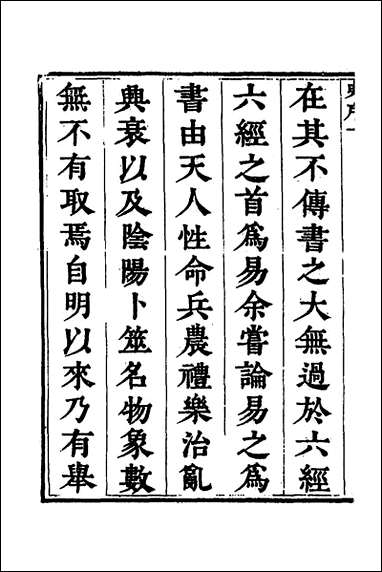 在其不傳書之大無過於六經
六經之首爲易余嘗論易之爲
書由天人性命兵農禮樂治亂
興衰以及陰陽卜筮名物象數
無不有取焉自明以來乃有舉